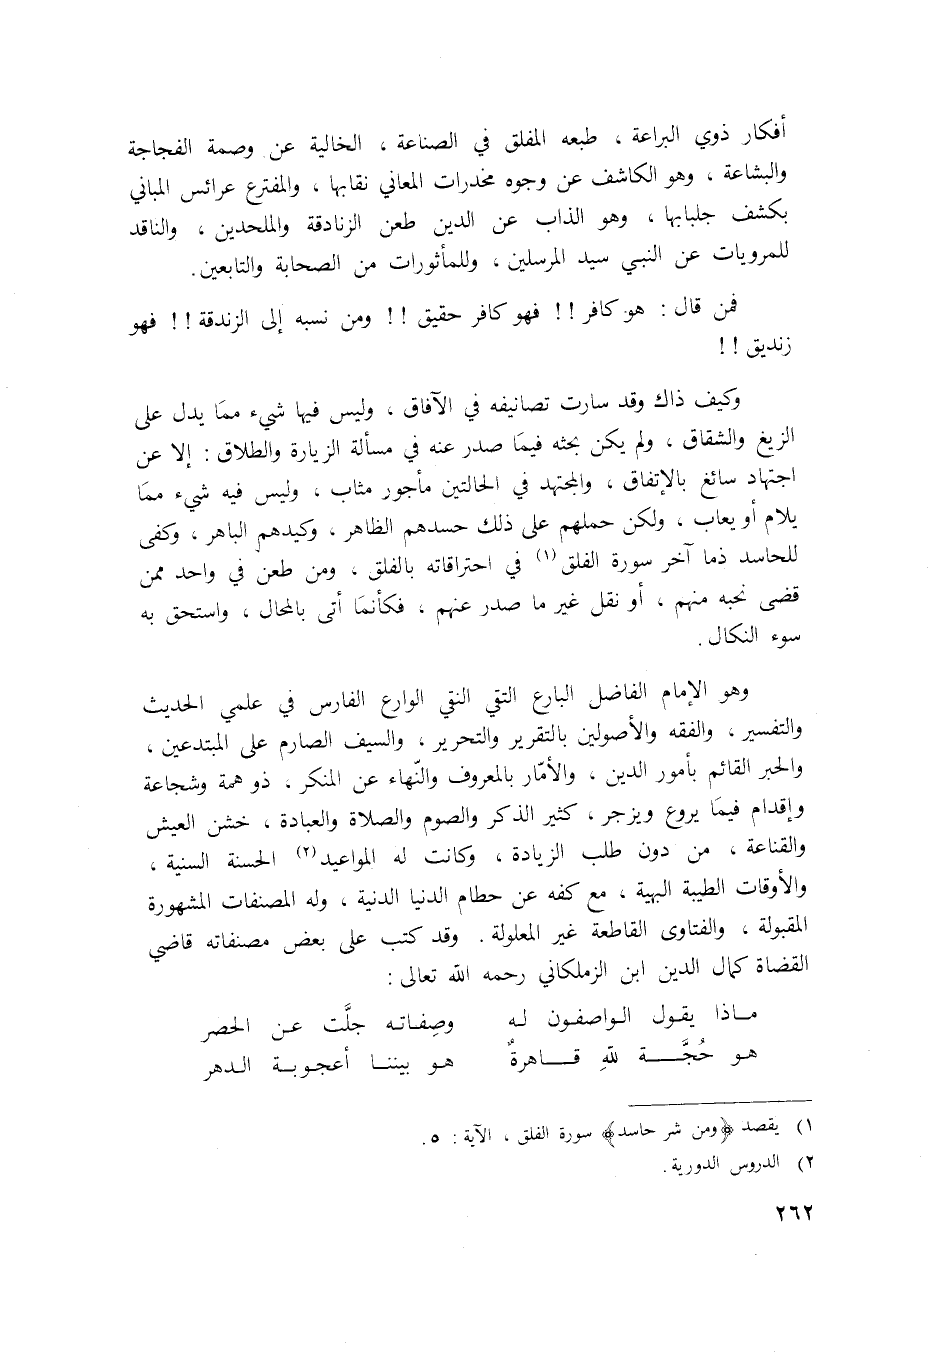 أفكار ذوي البراعة ، طبعه المفلق في الصناعة ، الخالية عن وصمة الفجاجة
والبشاعة ، وهو الكاشف عن وجوه مخدرات المعاني نقابها ، والمفترع عرائس المباني
بكشف جلبابها ، وهو الذاب عن الدين طعن الزنادقة والملحدين ، والناقد
للمرويات عن النبي سيد المرسلين ، وللمأثورات من الصحابة والتابعين .
فمن قال : هو كافر !! فهو كافر حقيق !! ومن نسبه إلى الزندقة !! فهو
زنديق !!
وكيف ذاك وقد سارت تصانيفه في الآفاق ، وليس فيها شيء ممَا يدل على
الزيغ والشقاق ، ولم يكن بحثه فيمَا صدر عنه في مسألة الزيارة والطلاق : إلا عن
اجتهاد سائغ بالإتفاق ، والمجتهد في الحالتين مأجور مثاب ، وليس فيه شيء ممَا
يلام أو يعاب ، ولكن حملهم على ذلك حسدهم الظاهر ، وكيدهم الباهر ، وكفى
للحاسد ذما آخر سورة الفلق (١) في احتراقاته بالفلق ، ومن طعن في واحد ممن
قضى نحبه منهم ، أو نقل غير ما صدر عنهم ، فكأنمَا أتى بالمحال ، واستحق به
سوء النكال .
وهو الإمام الفاضل البارع التقي النقي الوارع الفارس في علمي الحديث
والتفسير ، والفقه والأصولين بالتقرير والتحرير ، والسيف الصارم على المبتدعين ،
والحبر القائم بأمور الدين ، والأمّار بالمعروف والنّهاء عن المنكر ، ذو همة وشجاعة
وإقدام فيمَا يروع ويزجر ، كثير الذكر والصوم والصلاة والعبادة ، خشن العيش
والقناعة ، من دون طلب الزيادة ، وكانت له المواعيد (٢) الحسنة السنية ،
والأوقات الطيبة البهية ، مع كفه عن حطام الدنيا الدنية ، وله المصنفات المشهورة
المقبولة ، والفتاوى القاطعة غير المعلولة . وقد كتب على بعض مصنفاته قاضي
القضاة كمال الدين ابن الزملكاني رحمه الله تعالى :
مـاذا يقـول الـواصفـون لـه وصِفـاتـه جلَّت عـن الحصر
هـو حُجَّـة للهِ قـاهـرةٌ هـو بيننـا أعجـوبـة الـدهر
١) يقصد ﴿ومن شر حاسد﴾ سورة الفلق ، الآية : ٥ .
٢) الدروس الدورية .
٢٦٢